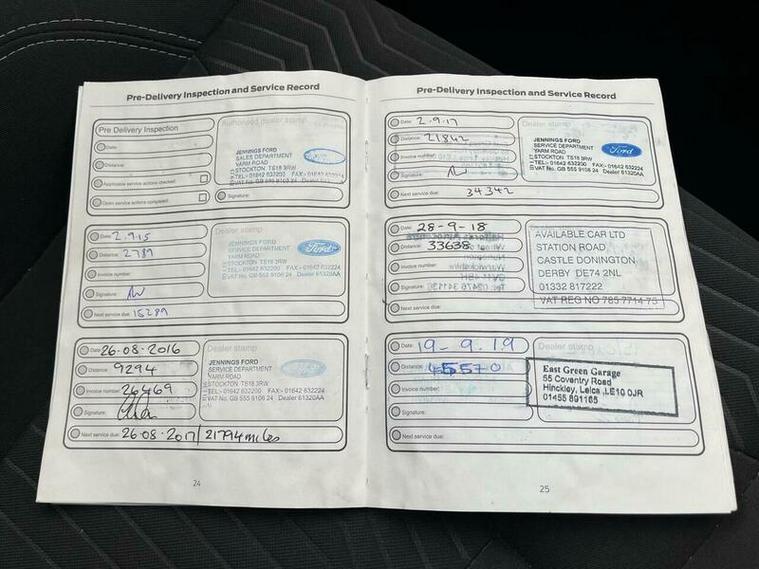 Pre-Delivery Inspection and Service Record
Pre Delivery Inspection
Date:
Distance:
Applicable service actions checked:
Open service actions completed:
Authorised dealer stamp
JENNINGS FORD
SALES DEPARTMENT
YARM ROAD
STOCKTON TS18 3RW
TEL - 01642 632200 FAX - 01642 632224
VAT No. GB 555 9108 24 Dealer 61320AA
Signature:
Date: 2.9.15
Distance: 2789
Invoice number:
Signature:
Next service due: 15289
Dealer stamp
JENNINGS FORD
SERVICE DEPARTMENT
YARM ROAD
STOCKTON TS18 3RW
TEL - 01642 632200 FAX - 01642 632224
VAT No. GB 555 9108 24 Dealer 61320AA
Ford
Date: 26-08-2016
Distance: 9294
Invoice number: 26469
Signature:
Next service due: 26-08-2017/21794 miles
Dealer stamp
JENNINGS FORD
SERVICE DEPARTMENT
YARM ROAD
STOCKTON TS18 3RW
TEL - 01642 632200 FAX - 01642 632224
VAT No. GB 555 9108 24 Dealer 61320AA
24
Pre-Delivery Inspection and Service Record
Date: 2.9.17
Distance: 21842
Invoice number:
Signature:
Next service due: 34342
Dealer stamp
JENNINGS FORD
SERVICE DEPARTMENT
YARM ROAD
STOCKTON TS18 3RW
TEL - 01642 632200 FAX - 01642 632224
VAT No. GB 555 9108 24 Dealer 61320AA
Ford
Date: 28-9-18
Distance: 33638
Invoice number:
Signature:
Next service due:
AVAILABLE CAR LTD
STATION ROAD,
CASTLE DONINGTON
DERBY DE74 2NL
01332 817222
VAT REG NO 785 7714 75
Date: 19-9.19
Distance: 45570
Invoice number:
Signature:
Next service due:
Dealer stamp
East Green Garage
55 Coventry Road
Hinckley, Leics ,LE10 0JR
01455 891165
25